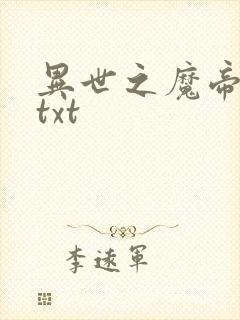 異世之魔帝
txt
李遠軍